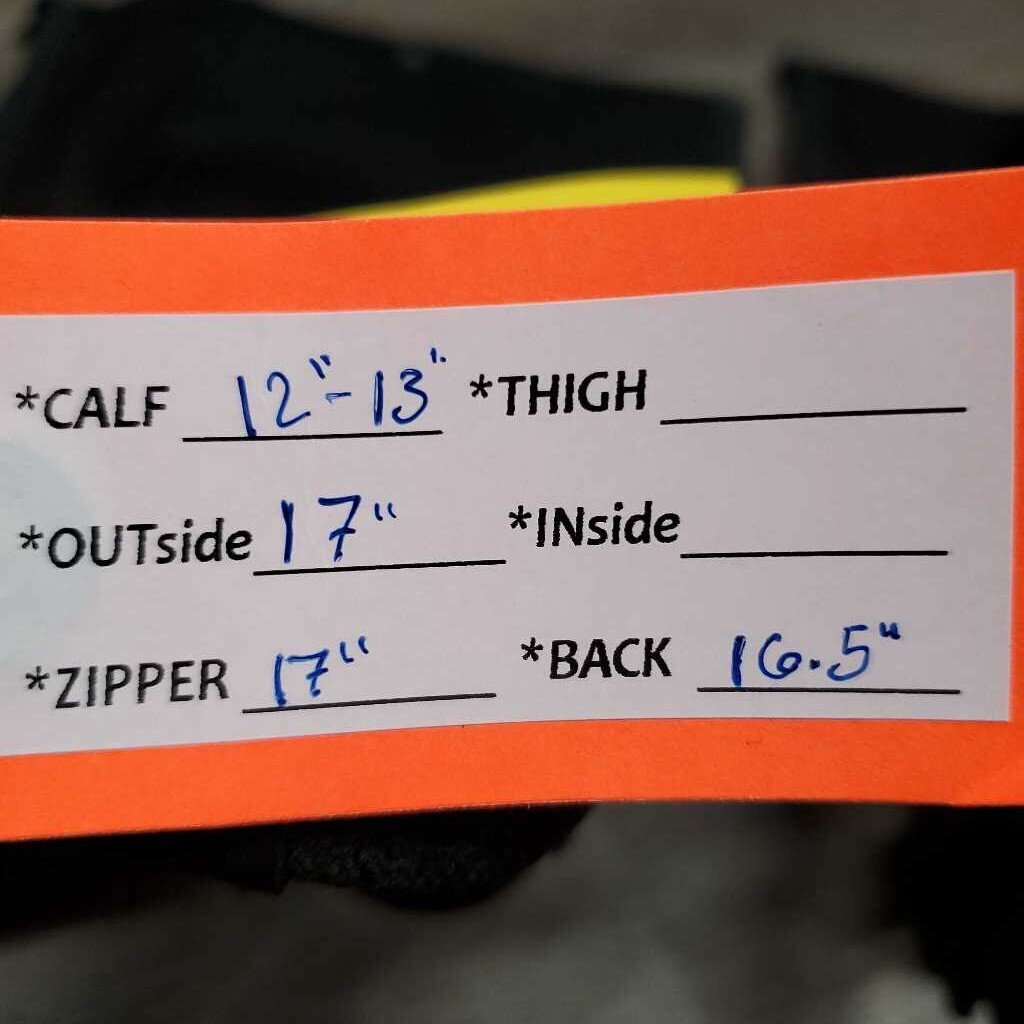 *CALF 12"-13" *THIGH
*OUTside 17" *INside
*ZIPPER 17" *BACK 16.5"